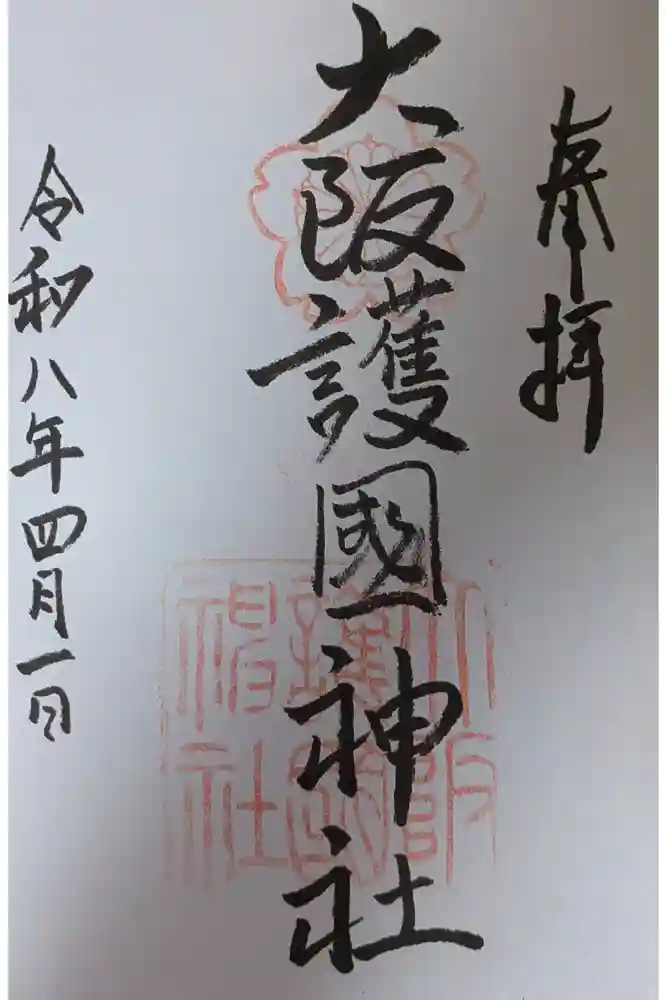 奉拝
大阪護國神社
大阪護國神社
令和八年四月一日